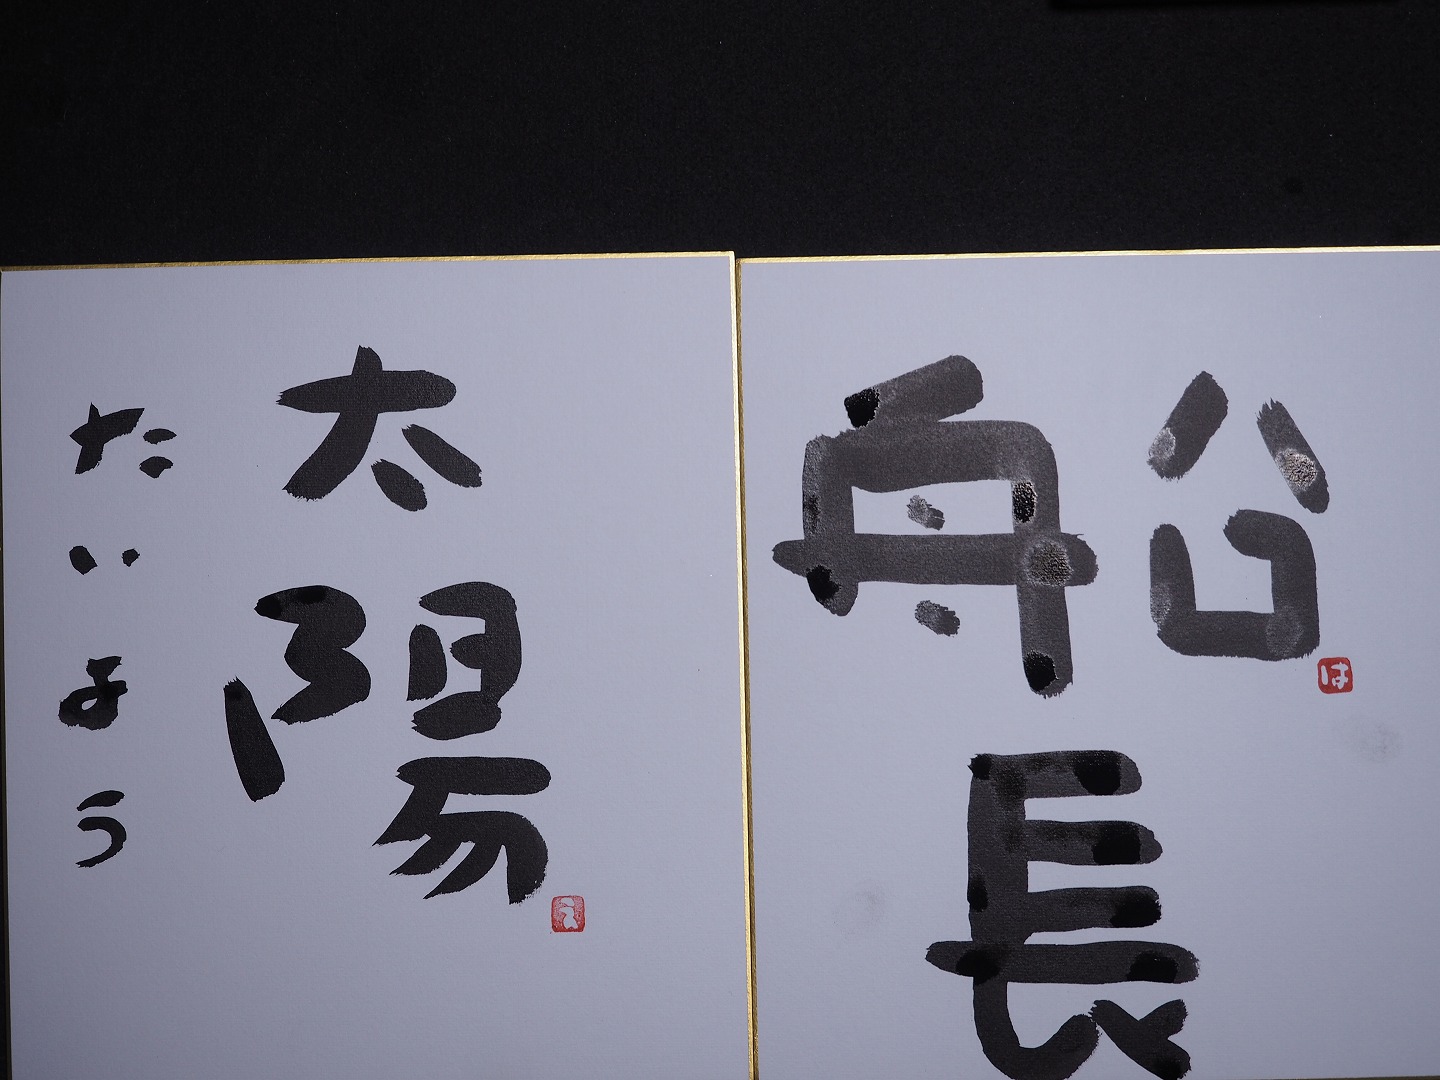 船長
は
太陽
たいよう
え